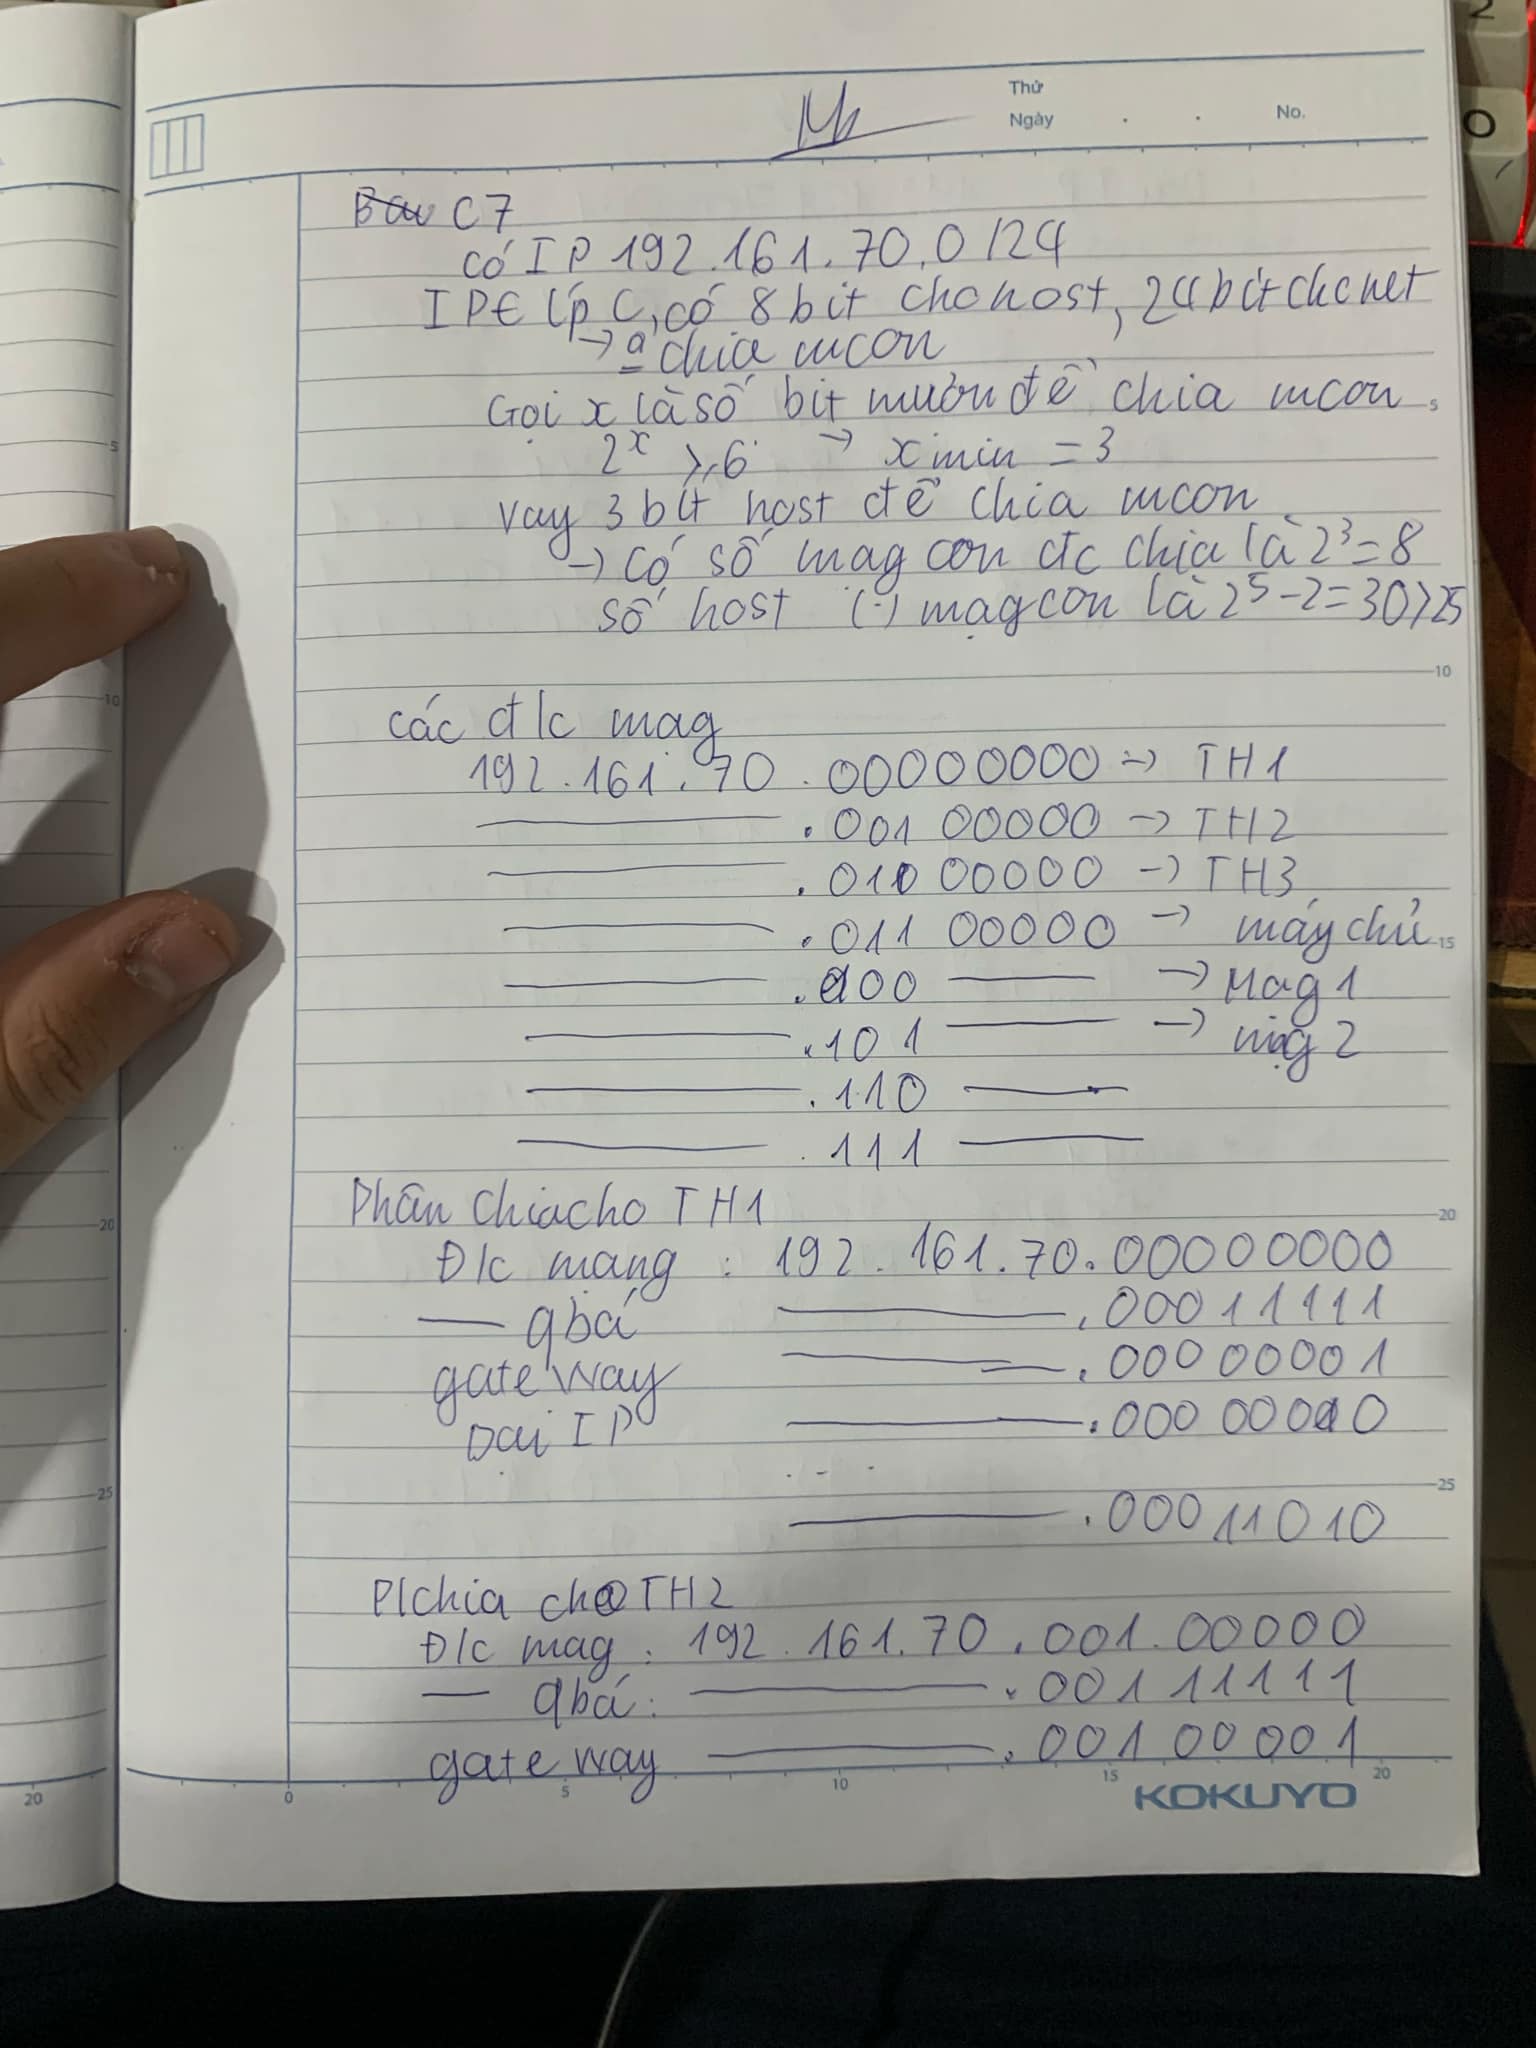 Thứ
Ngày . . No.
C7
có IP 192.161.70.0/24
IP∈ lớp C, có 8 bit cho host, 24 bit cho net
→ chia mcon
Gọi x là số bit mượn để chia mcon
2^x ≥ 6 → x min = 3
vay 3 bit host để chia mcon
→ Có số mag con đc chia là 2³ = 8
số host (·) mạg con là 2⁵-2=30>25
các đ/c mag
192.161.70.00000000 → TH1
———.001 00000 → TH2
———.010 00000 → TH3
———.011 00000 → máy chủ
———.100 —— → Mag 1
———.101 —— → mạg 2
———.110 ——
———.111 ——
Phân chia cho TH1
Đ/c mang : 192.161.70.00000000
— qbá ———.00011111
gate way ———.000 00001
Dai IP ———.000 00010
...
———.00011010
P/chia cho TH2
Đ/c mag : 192.161.70.001.00000
— qbá: ———.00111111
gate way ———.001 00001
KOKUYO